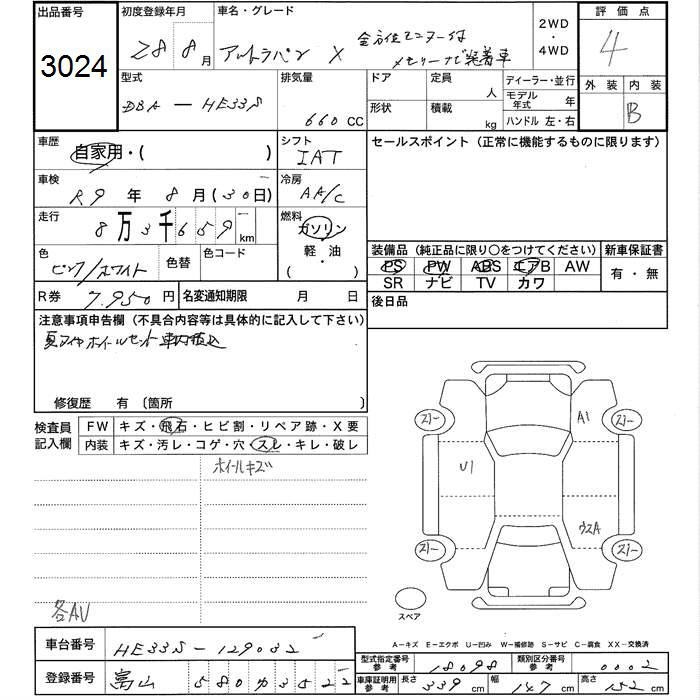 出品番号
3024
初度登録年月
28 8月
車名・グレード
X
全方位モニター付
メモリーナビ装着車
2WD
・
4WD
評価点
4
外装 内装
B
型式
DBA - HE33S
排気量
660 CC
ドア
形状
定員
人
積載
kg
ディーラー・並行
モデル年式 年
ハンドル 左・右
車歴
自家用・( )
シフト
IAT
車検
R9 年 8 月 (30日)
冷房
AA/C
走行
8万3千659 km
燃料
ガソリン
軽・油
・( )
色
ピンク/ホワイト
色替
色コード
R券
7,950 円
名変通知期限 月 日
セールスポイント (正常に機能するものに限ります)
装備品 (純正品に限り○をつけてください)
PS PW ABS エアB AW
SR ナビ TV カワ
新車保証書
有・無
後日品
注意事項申告欄 (不具合内容等は具体的に記入して下さい)
夏タイヤホイールセット車内積込
修復歴 有 (箇所 )
検査員
記入欄
FW キズ・飛石・ヒビ割・リペア跡・X要
内装 キズ・汚レ・コゲ・穴・スレ・キレ・破レ
ホイールキズ
各AU
スレ
スレ
A1
U1
ウスA
スレ
スレ
スペア
A－キズ E－エクボ U－凹み W－補修跡 S－サビ C－腐食 XX－交換済
車台番号
HE33S-129032
登録番号
580 3522
型式指定番号
参考
18098
類別区分番号
参考
0002
車庫証明用
参考
長さ 339 cm
幅 147 cm
高さ 152 cm